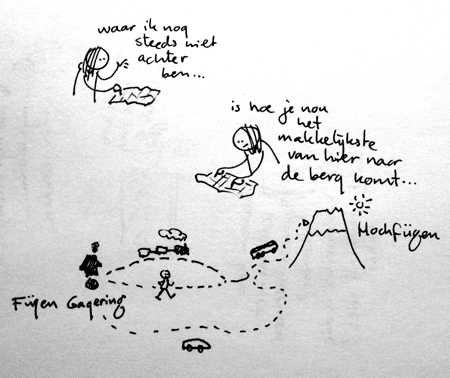 waar ik nog
steeds niet
achter
ben...
is hoe je nou
het
makkelijkste
van hier naar
de berg komt...
Hochfügen
Fügen Gagering